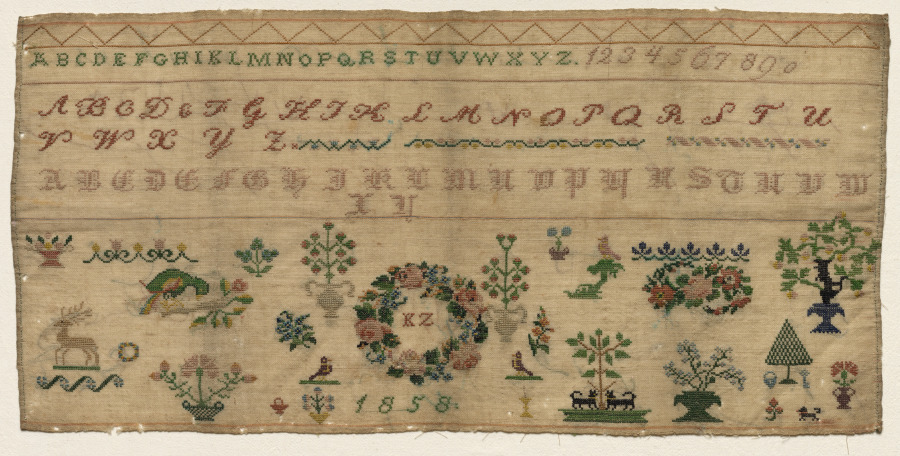 ABCDEFGHIKLMNOPQRSTUVWXYZ. 1234567890
ABCDEFGHIKLMNOPQRSTU
VWXYZ
ABCDEFGHIKLMNOPQRSTUVW
XY
KZ
1858.